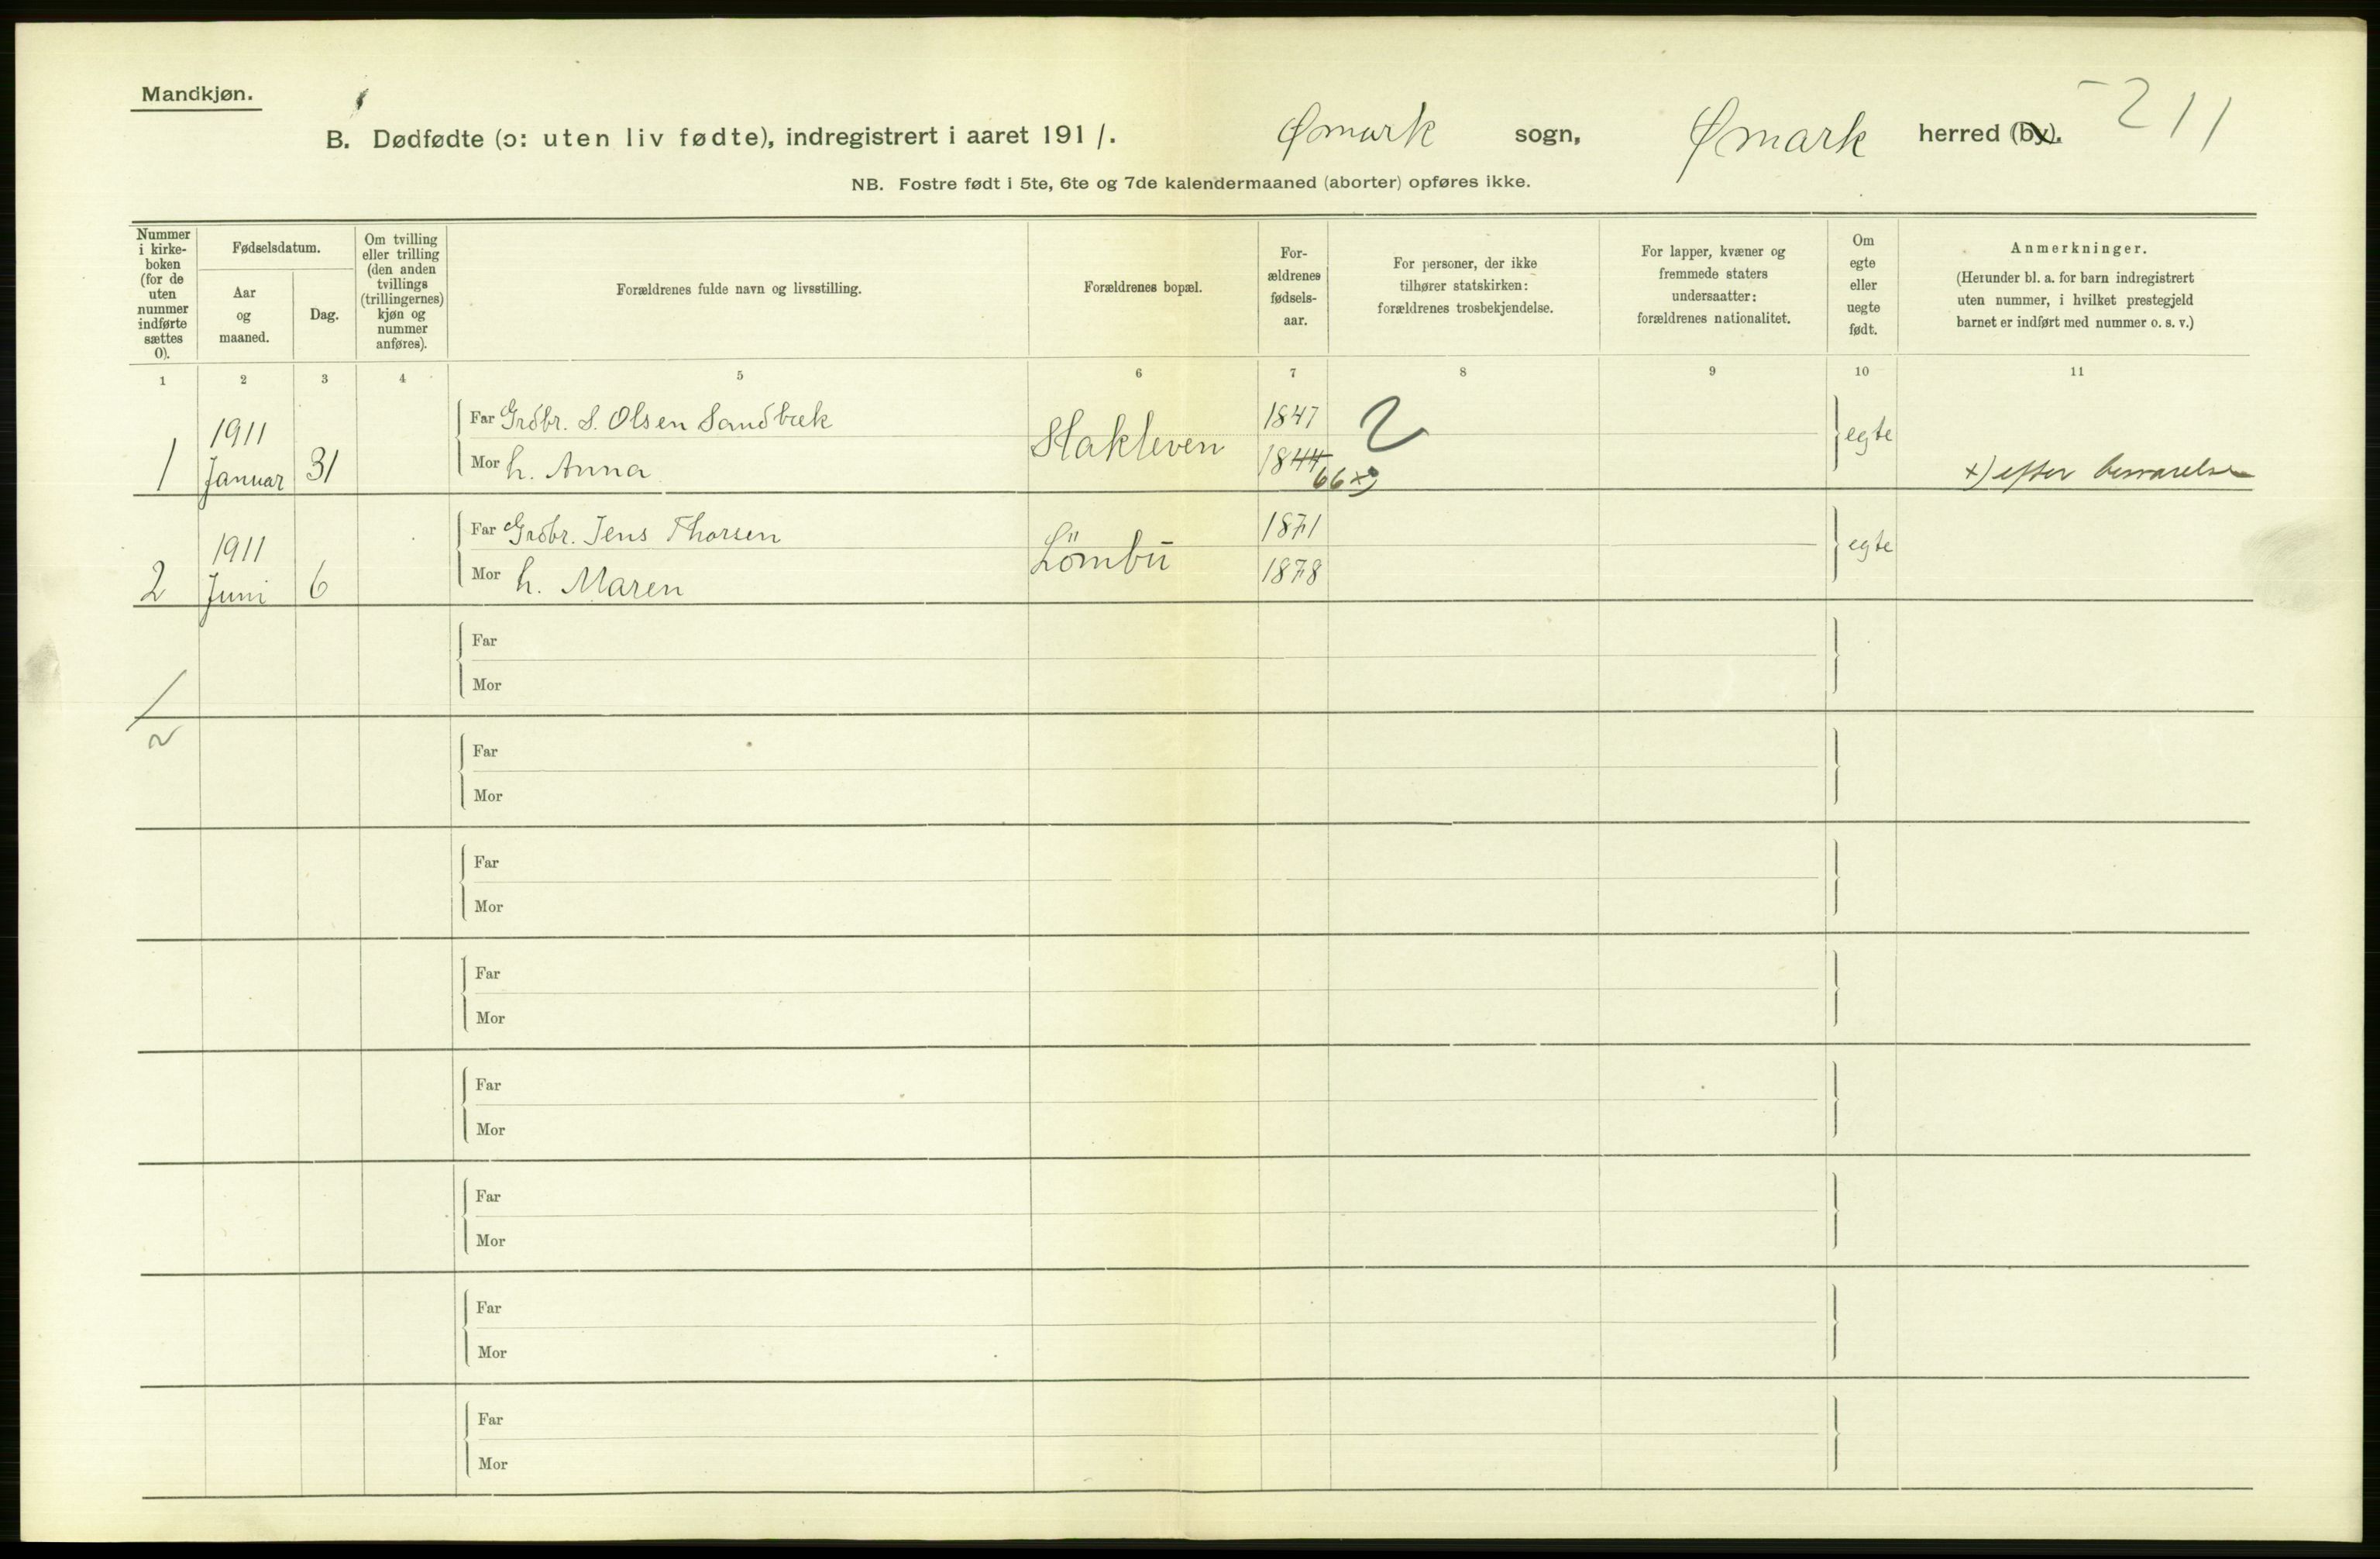 Mandkjøn.
211
B. Dødfødte (ɔ: uten liv fødte), indregistrert i aaret 1911. Ømark sogn, Ømark herred (by).
NB. Fostre født i 5te, 6te og 7de kalendermaaned (aborter) opføres ikke.
Nummer
i kirke-
boken
(for de
uten
nummer
indførte
sættes
0).
Fødselsdatum.
Aar
og
maaned.
Dag.
Om tvilling
eller trilling
(den anden
tvillings
(trillingernes)
kjøn og
nummer
anføres).
Forældrenes fulde navn og livsstilling.
Forældrenes bopæl.
For-
ældrenes
fødsels-
aar.
For personer, der ikke
tilhører statskirken:
forældrenes trosbekjendelse.
For lapper, kvæner og
fremmede staters
undersaatter:
forældrenes nationalitet.
Om
egte
eller
uegte
født.
Anmerkninger.
(Herunder bl. a. for barn indregistrert
uten nummer, i hvilket prestegjeld
barnet er indført med nummer o. s. v.)
1 2 3 4 5 6 7 8 9 10 11
1
1911
Januar
31
Far Grdbr. S. Olsen Sandbæk
Mor h. Anna
Slakleven
1847
1844
66 x)
2
egte
x) efter besvarelse
2
1911
Juni
6
Far Grdbr. Jens Thorsen
Mor h. Maren
Lömbü
1871
1878
egte
Far
Mor
2
Far
Mor
Far
Mor
Far
Mor
Far
Mor
Far
Mor
Far
Mor
Far
Mor